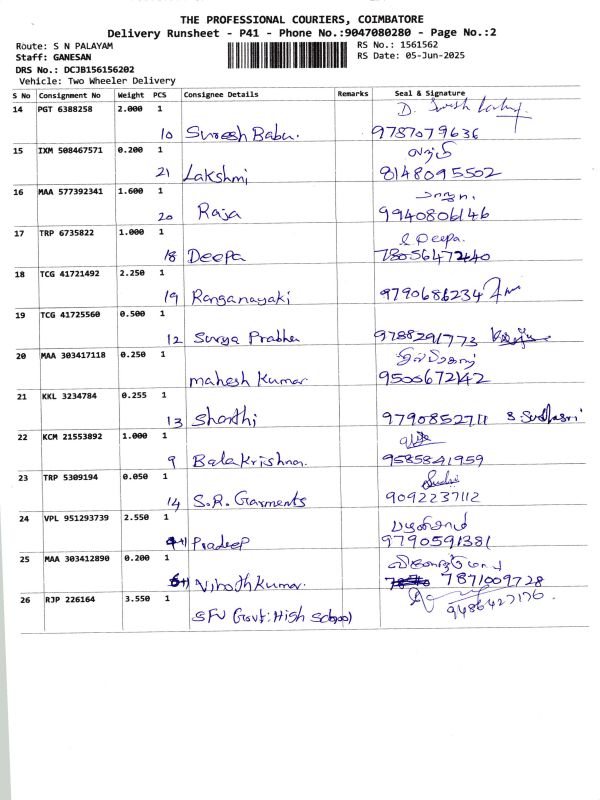 THE PROFESSIONAL COURIERS, COIMBATORE
Delivery Runsheet - P41 - Phone No.:9047080280 - Page No.:2
Route: S N PALAYAM
RS No.: 1561562
Staff: GANESAN
RS Date: 05-Jun-2025
DRS No.: DCJB156156202
Vehicle: Two Wheeler Delivery
S No Consignment No Weight PCS Consignee Details Remarks Seal & Signature
14 PGT 6388258 2.000 1
10 Suresh Babu. 9787079636
15 IXM 508467571 0.200 1
21 Lakshmi 8148095502
16 MAA 577392341 1.600 1
20 Raja 9940806146
17 TRP 6735822 1.000 1 Deepa.
18 Deepa
18 TCG 41721492 2.250 1
19 Ranganayaki 9790686234
19 TCG 41725560 0.500 1
12 Surya Prabha 9788291773
20 MAA 303417118 0.250 1
mahesh Kumar 9500672142
21 KKL 3234784 0.255 1
13 Shanthi 9790852711 S. Sudhasri
22 KCM 21553892 1.000 1
9 Balakrishnan. 9585841959
23 TRP 5309194 0.050 1
14 S.R. Garments 9092237112
24 VPL 951293739 2.550 1
Pradeep 9790591381
25 MAA 303412890 0.200 1
Vinoth Kumar. 7871009728
26 RJP 226164 3.550 1
SFV Govt: High School) 9486427176